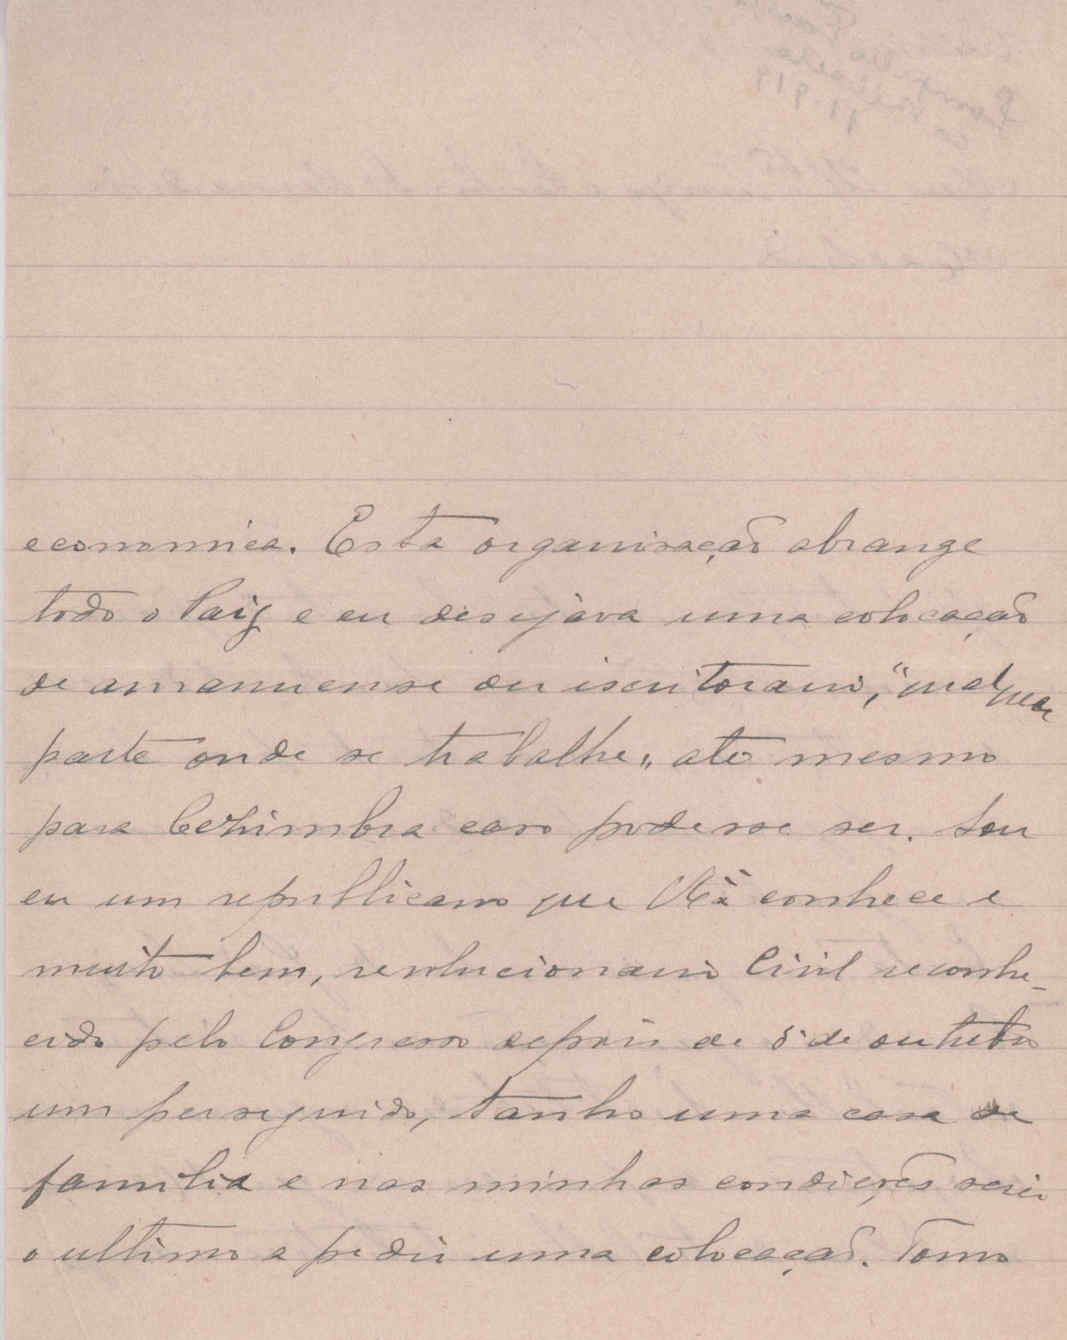 economica. Esta organisação abrange
todo o Paiz e eu desejava uma colocação
de amanuense ou iscritorario, "qualquer
parte onde se trabalhe" até mesmo
para Cezimbra caso podesse ser. Sou
eu um republicano que V. Exª conhece e
muito bem, revolucionario Civil reconhe-
cido pelo Congresso depois de 5 de outubro
um perseguido, tanho uma casa de
familia e nas minhas condições serei
o ultimo a pedir uma colocação. Tomo